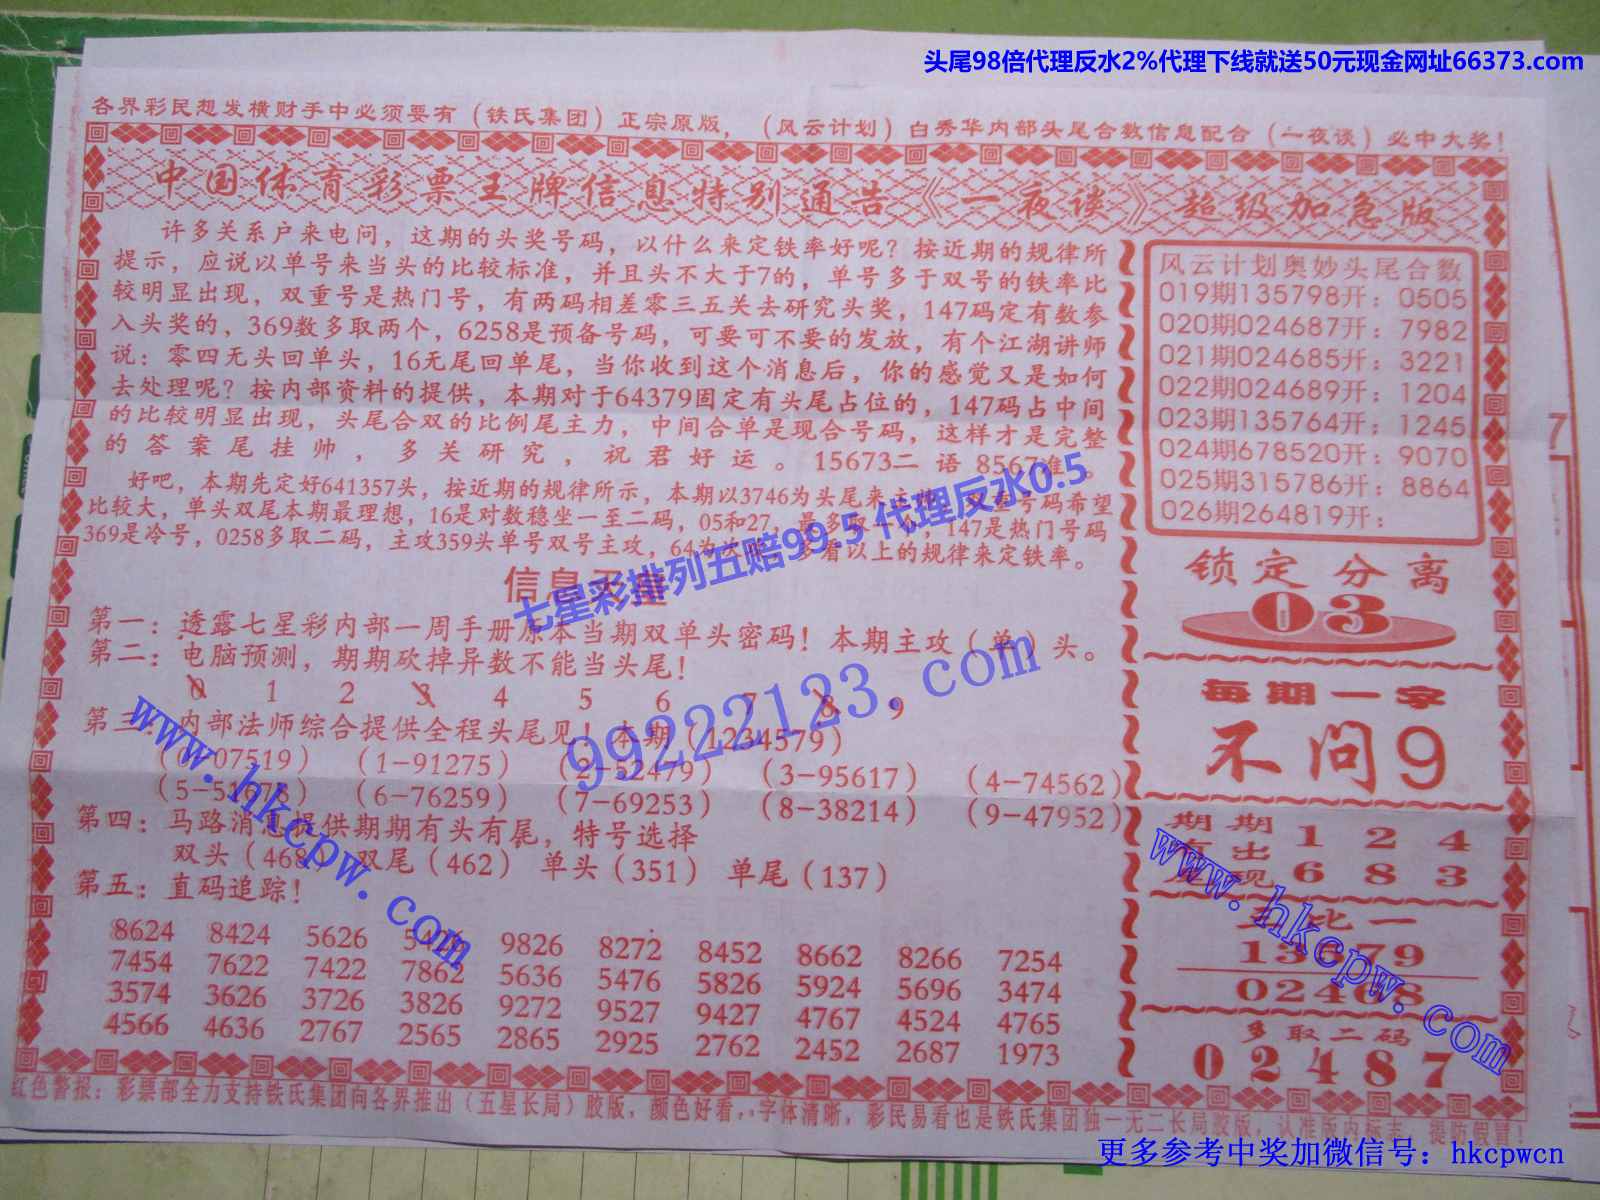 头尾98倍代理反水2%代理下线就送50元现金网址66373.com
各界彩民想发横财手中必须要有（铁氏集团）正宗原版，（风云计划）白秀华内部头尾合数信息配合（一夜谈）必中大奖！
中国体育彩票王牌信息特别通告《一夜谈》超级加急版
许多关系户来电问，这期的头奖号码，以什么来定铁率好呢？按近期的规律所
提示，应说以单号来当头的比较标准，并且头不大于7的，单号多于双号的铁率比
较明显出现，双重号是热门号，有两码相差零三五关去研究头奖，147码定有数参
入头奖的，369数多取两个，6258是预备号码，可要可不要的发放，有个江湖讲师
说：零四无头回单头，16无尾回单尾，当你收到这个消息后，你的感觉又是如何
去处理呢？按内部资料的提供，本期对于64379固定有头尾占位的，147码占中间
的比较明显出现，头尾合双的比例尾主力，中间合单是现合号码，这样才是完整
的答案尾挂帅，多关研究，祝君好运。15673二 语 8567准。
好吧，本期先定好641357头，按近期的规律所示，本期以3746为头尾来主 重号码希望
比较大，单头双尾本期最理想，16是对数稳坐一至二码，05和27，最多取一个，147是热门号码
369是冷号，0258多取二码，主攻359头单号双号主攻，64为次 多看以上的规律来定铁率。
信息天
七星彩排列五赔99.5 代理反水0.5
第一：透露七星彩内部一周手册原本当期双单头密码！本期主攻（单）头。
第二：电脑预测，期期砍掉异数不能当头尾！
0 1 2 3 4 5 6 7 8 9
第三：内部法师综合提供全程头尾见！本期（1234579）
（0-07519）（1-91275）（2-52479）（3-95617）（4-74562）
（5-51678）（6-76259）（7-69253）（8-38214）（9-47952）
第四：马路消息提供期期有头有尾，特号选择
双头（468）双尾（462） 单头（351） 单尾（137）
第五：直码追踪！
8624 8424 5626 9826 8272 8452 8662 8266 7254
7454 7622 7422 7862 5636 5476 5826 5924 5696 3474
3574 3626 3726 3826 9272 9527 9427 4767 4524 4765
4566 4636 2767 2565 2865 2925 2762 2452 2687 1973
风云计划奥妙头尾合数
019期135798开：0505
020期024687开：7982
021期024685开：3221
022期024689开：1204
023期135764开：1245
024期678520开：9070
025期315786开：8864
026期264819开：
锁定分离
03
每期一字
不问9
期期 1 2 4
有出
现 6 8 3
比一
13579
02468
多取二码
02487
99222123.com
www.hkcpw.com
www.hkcpw.com
红色警报：彩票部全力支持铁氏集团向各界推出（五星长局）胶版，颜色好看，字体清晰，彩民易看也是铁氏集团独一无二长局胶版，认准版内标志，提防假冒！
更多参考中奖加微信号：hkcpwcn